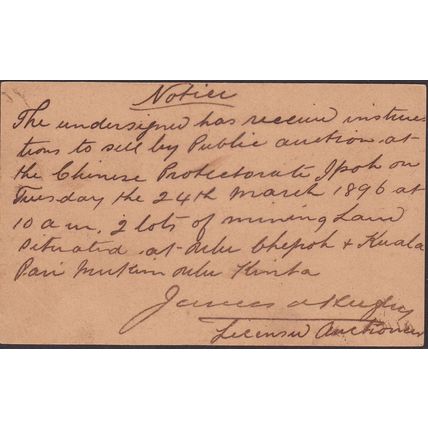 Notice
The undersigned has receive instruc
tions to sell by Public auction at
the Chinese Protectorate Ipoh on
Tuesday the 24th March 1896 at
10 a.m. 2 lots of mining Land
situated at Ulu Chepoh & Kuala
Pari Mukim Ulu Kinta
James
Licensed Auctioneer